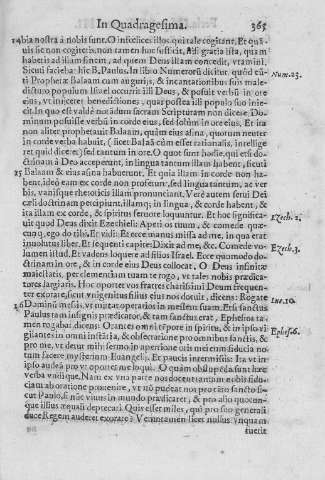 In Quadragesima. 365
14 bia nostra à nobis sunt. O infelices illos, qui tale cogitant. Et quã-
uis sic non cogitetis, non tamen hoc sufficit, Adsi gratia ista, quam
habetis ad illam finem, ad quem Deus illam concedit, vtamini.
Sicuti faciebat hic B. Paulus. In libro Numerorũ dicitur, quòd cũ-
ti Prophetæ Balaam cum auguriis, & incantationibus suis male- Num. 23.
dicturo populum Israel occurrit illi Deus, & posuit verbũ in ore
eius, vt iniceret benedictiones, quas postea illi populo suo inie-
cit. In quo est valdè notãdum sacram Scripturam non dicere Do-
minum posuisse verbũ in corde eius, sed solùm in ore eius. Et ita
non aliter prophetauit Balaam, quàm eius asina, quorum neuter
in corde verba habuit, (licet Balaã cùm esset rationalis, intellige
ret quid diceret) sed tantum in ore. O quot sunt hodie, qui etsi do-
ctrinam à Deo acceperunt, in lingua tantum illam habent, sicuti
25 Balaam & eius asina habuerunt. Et quia illam in corde non ha-
bent, ideò eam ex corde non proferunt, sed lingua tantum, ac ver
bis, vanisque rhetoricis illam pronunciant. Verè autem serui Dei
cùm doctrinam percipiunt, illamq; in lingua, & corde habent, &
ita illam ex corde, & spiritus feruore loquuntur. Et hoc significa-
uit quod Deus dixit Ezechieli: Aperi os tuum, & comede quæ- Ezech. 2.
cunq; ego do tibi. Et vidi: Et ecce manus missa ad me, in qua erat
inuolutus liber. Et sequenti capite: Dixit ad me, &c. Comede vo- Ezech. 3.
lumen istud. Et vadens loquere ad filios Israel. Ecce quomodo do-
ctrinam in ore, & in corde eius Deus collocat. O Deus infinitæ
maiestatis, per clementiam tuam te rogo, vt tales nobis prædica-
tores largiaris. Hoc oportet vos fratres charissimi Deum frequen-
ter exorare, sicut vnigenitus filius eius nos docuit, dicens: Rogate Luc. 10.
26 Dominũ messis, vt mittat operarios in messem suam. Etsi sanctus
Paulus tam insignis prædicator, & tam sanctus erat, Ephesios ta-
men rogabat dicens: Orantes omni tẽpore in spiritu, & in ipso vi Ephes. 6.
gilantes in omni instãtia, & obseruatione pro omnibus sanctis, &
pro me, vt detur mihi sermo in apertione oris mei cum fiducia no
tum facere mysterium Euangelij. Et paucis intermissis: Ita vt in
ipso audeã pro vt oportet me loqui. O quàm obstupẽda sunt hæc
verba vndique. Nam ex vna parte nos docent quantum nobis fidu-
ciam aboratione prouenire, vt nõ pudeat nos pro viro sancto si-
cut Paulo, si nũc viuus in mundo prædicaret, & pro alio quocun-
que illius æquali deprecari. Quis esset miles, qui pro suo generali
duce Regem auderet exorare? Veruntamen licet nullus vnquam
fuerit